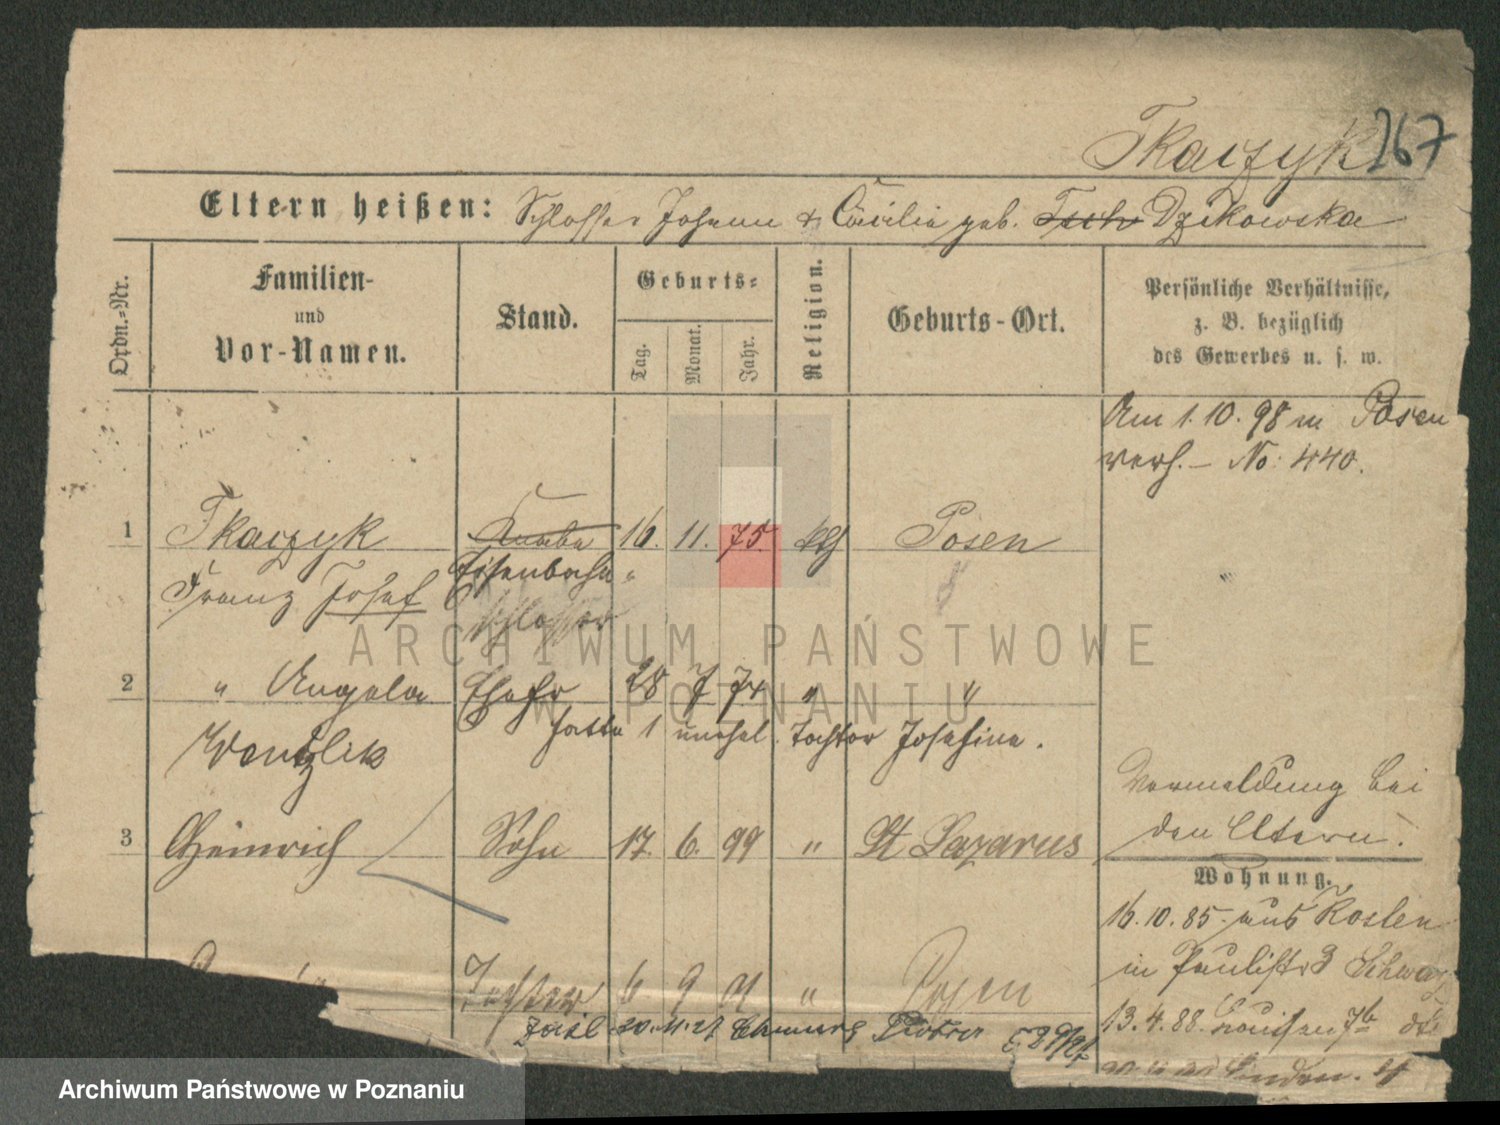 Tkaczyk 267
Eltern heißen: Schlosser Johann & Cäcilie geb. Dzikowska
Ordn.-Nr.
Familien-
und
Vor-Namen.
Stand.
Geburts-
Tag.
Monat.
Jahr.
Religion.
Geburts-Ort.
Persönliche Verhältnisse,
z. B. bezüglich
des Gewerbes u. s. w.
Am 1.10.98 in Posen
verh. – No: 440.
1 Tkaczyk Knabe 16. 11. 75. kth Posen
Franz Josef Eisenbahn-
Schlosser
2 " Angela Ehefr 28 7 74 " "
hatte 1 unehel. Tochter Josefine.
Wentzlik
Vermeldung bei
den Eltern.
3 Heinrich Sohn 17. 6. 99 " St Lazarus
Wohnung.
16.10.85. aus Kosten
in Paulistr 3
Tochter 6 9 01 " Posen
13.4.88. Louisen 7b
20.11.21
ARCHIWUM PAŃSTWOWE
W POZNANIU
Archiwum Państwowe w Poznaniu